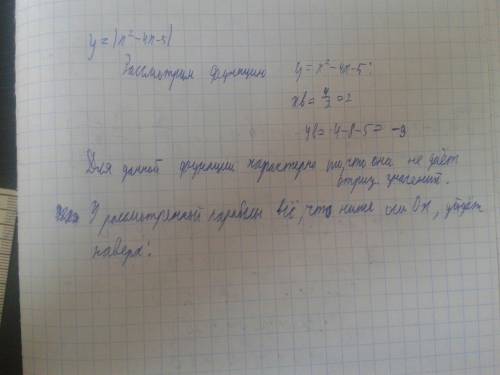 y = |x²-4x-5|
Рассмотрим функцию y = x²-4x-5:
xв = 4/2 = 2
yв = 4-8-5 = -9
Для данной функции характерно то, что она не даёт
отриц. значений.
У рассмотренной параболы всё, что ниже оси Ox, уйдёт
наверх.